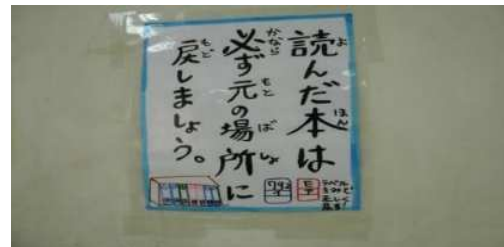 読んだ本は
必ず元の場所に
戻しましょう。